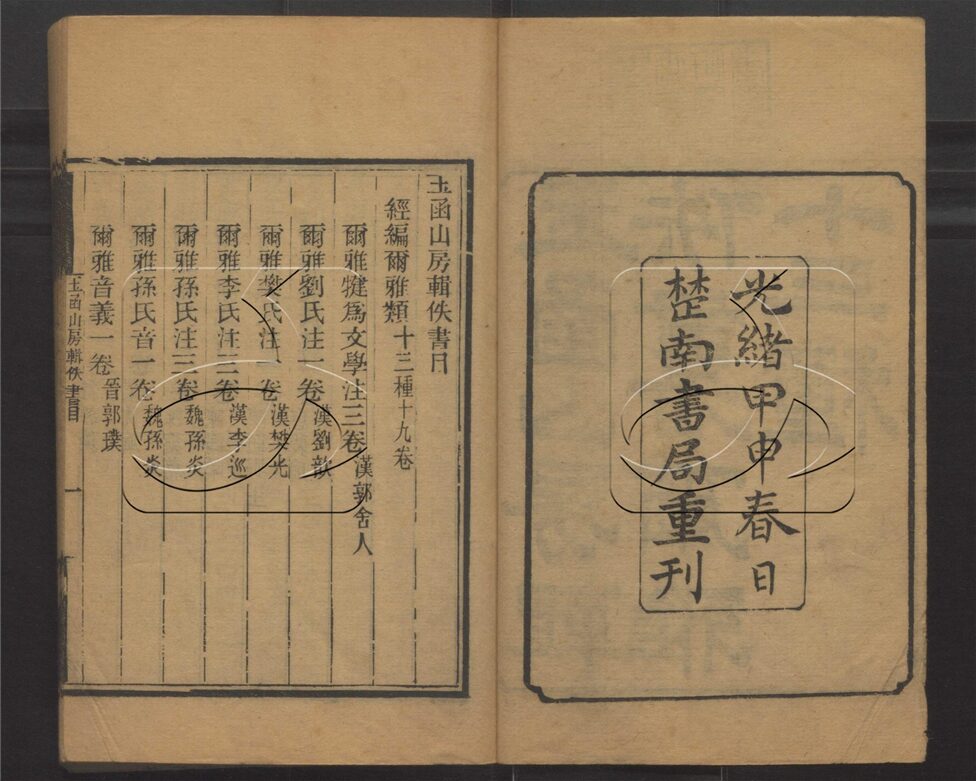 光緒甲申春日
楚南書局重刊
玉函山房輯佚書目
經編爾雅類十三種十九卷
爾雅犍爲文學注三卷漢郭舍人
爾雅劉氏注一卷漢劉歆
爾雅樊氏注一卷漢樊光
爾雅李氏注三卷漢李巡
爾雅孫氏注三卷魏孫炎
爾雅孫氏音一卷魏孫炎
爾雅音義一卷晉郭璞
玉函山房輯佚書目 一